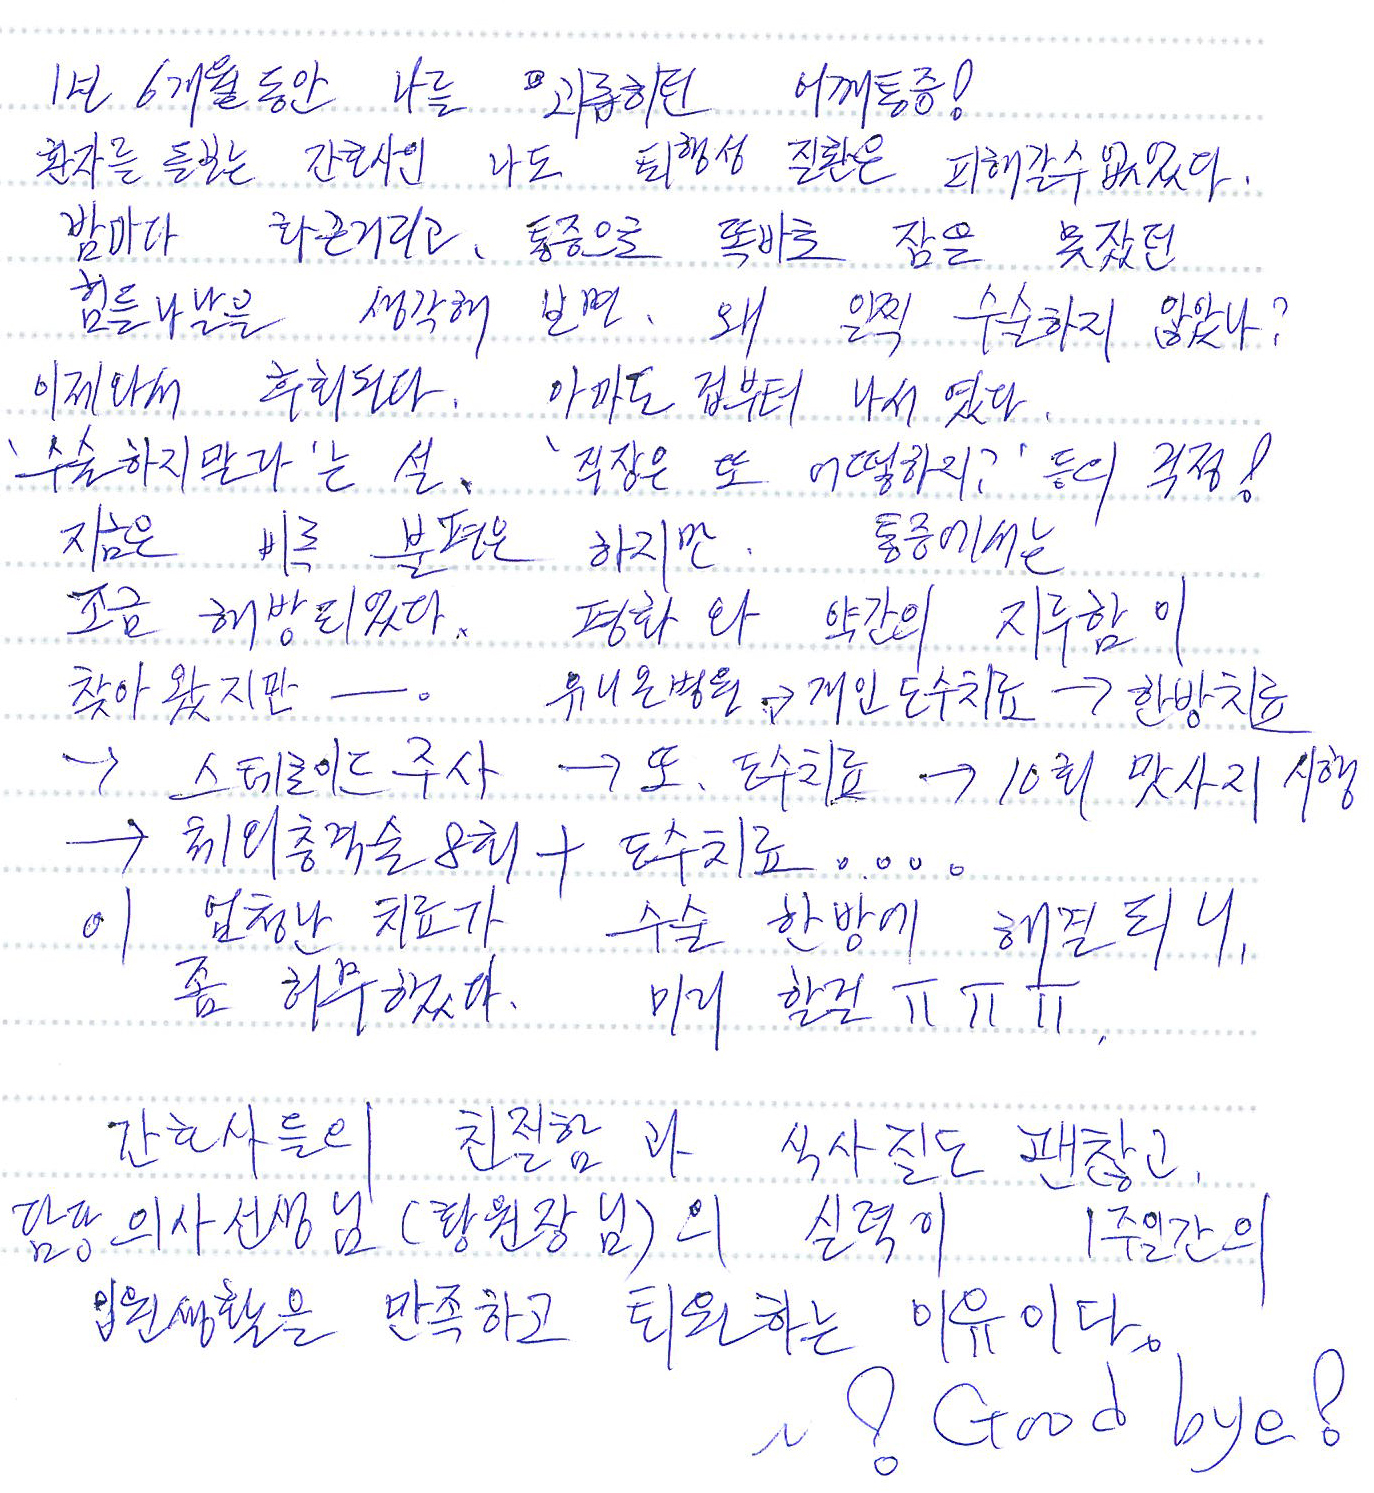 1년 6개월동안 나를 괴롭히던 어깨통증!
환자를 돌보는 간호사인 나도 퇴행성 질환은 피해갈수 없었다.
밤마다 화끈거리고, 통증으로 똑바로 잠을 못잤던
힘든나날을 생각해 보면, 왜 일찍 수술하지 않았나?
이제와서 후회된다. 아마도 겁부터 나서 였다.
'수술하지말라'는 설, '직장은 또 어떻하지?' 등의 걱정!
지금은 비록 불편은 하지만. 통증에서는
조금 해방되었다. 평화 와 약간의 지루함이
찾아 왔지만 —. 유니온병원 → 개인도수치료 → 한방치료
→ 스테로이드 주사 → 또, 도수치료 → 10회 맛사지 시행
→ 체외충격술 8회 + 도수치료.....
이 엄청난 치료가 수술 한방에 해결되니,
좀 허무했다. 미리 할걸 ㅠㅠㅠ,
간호사들의 친절함 과 식사질도 괜찮고,
담당의사선생님(황원장님)의 실력이 1주일간의
입원생활을 만족하고 퇴원하는 이유이다.
~! Good bye!